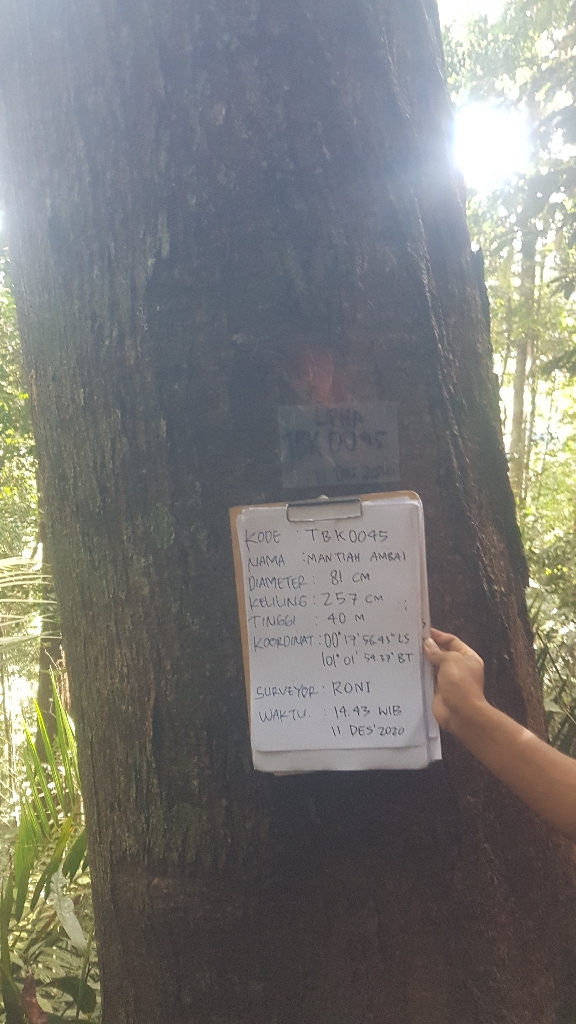 LPHA
TBK 0045
KODE : TBK0045
NAMA : MANTIAH AMBAI
DIAMETER : 81 CM
KELILING : 257 CM
TINGGI : 40 M
KOORDINAT : 00° 17' 56.43" LS
101° 01' 59.37" BT
SURVEYOR : RONI
WAKTU : 14.43 WIB
11 DES'2020